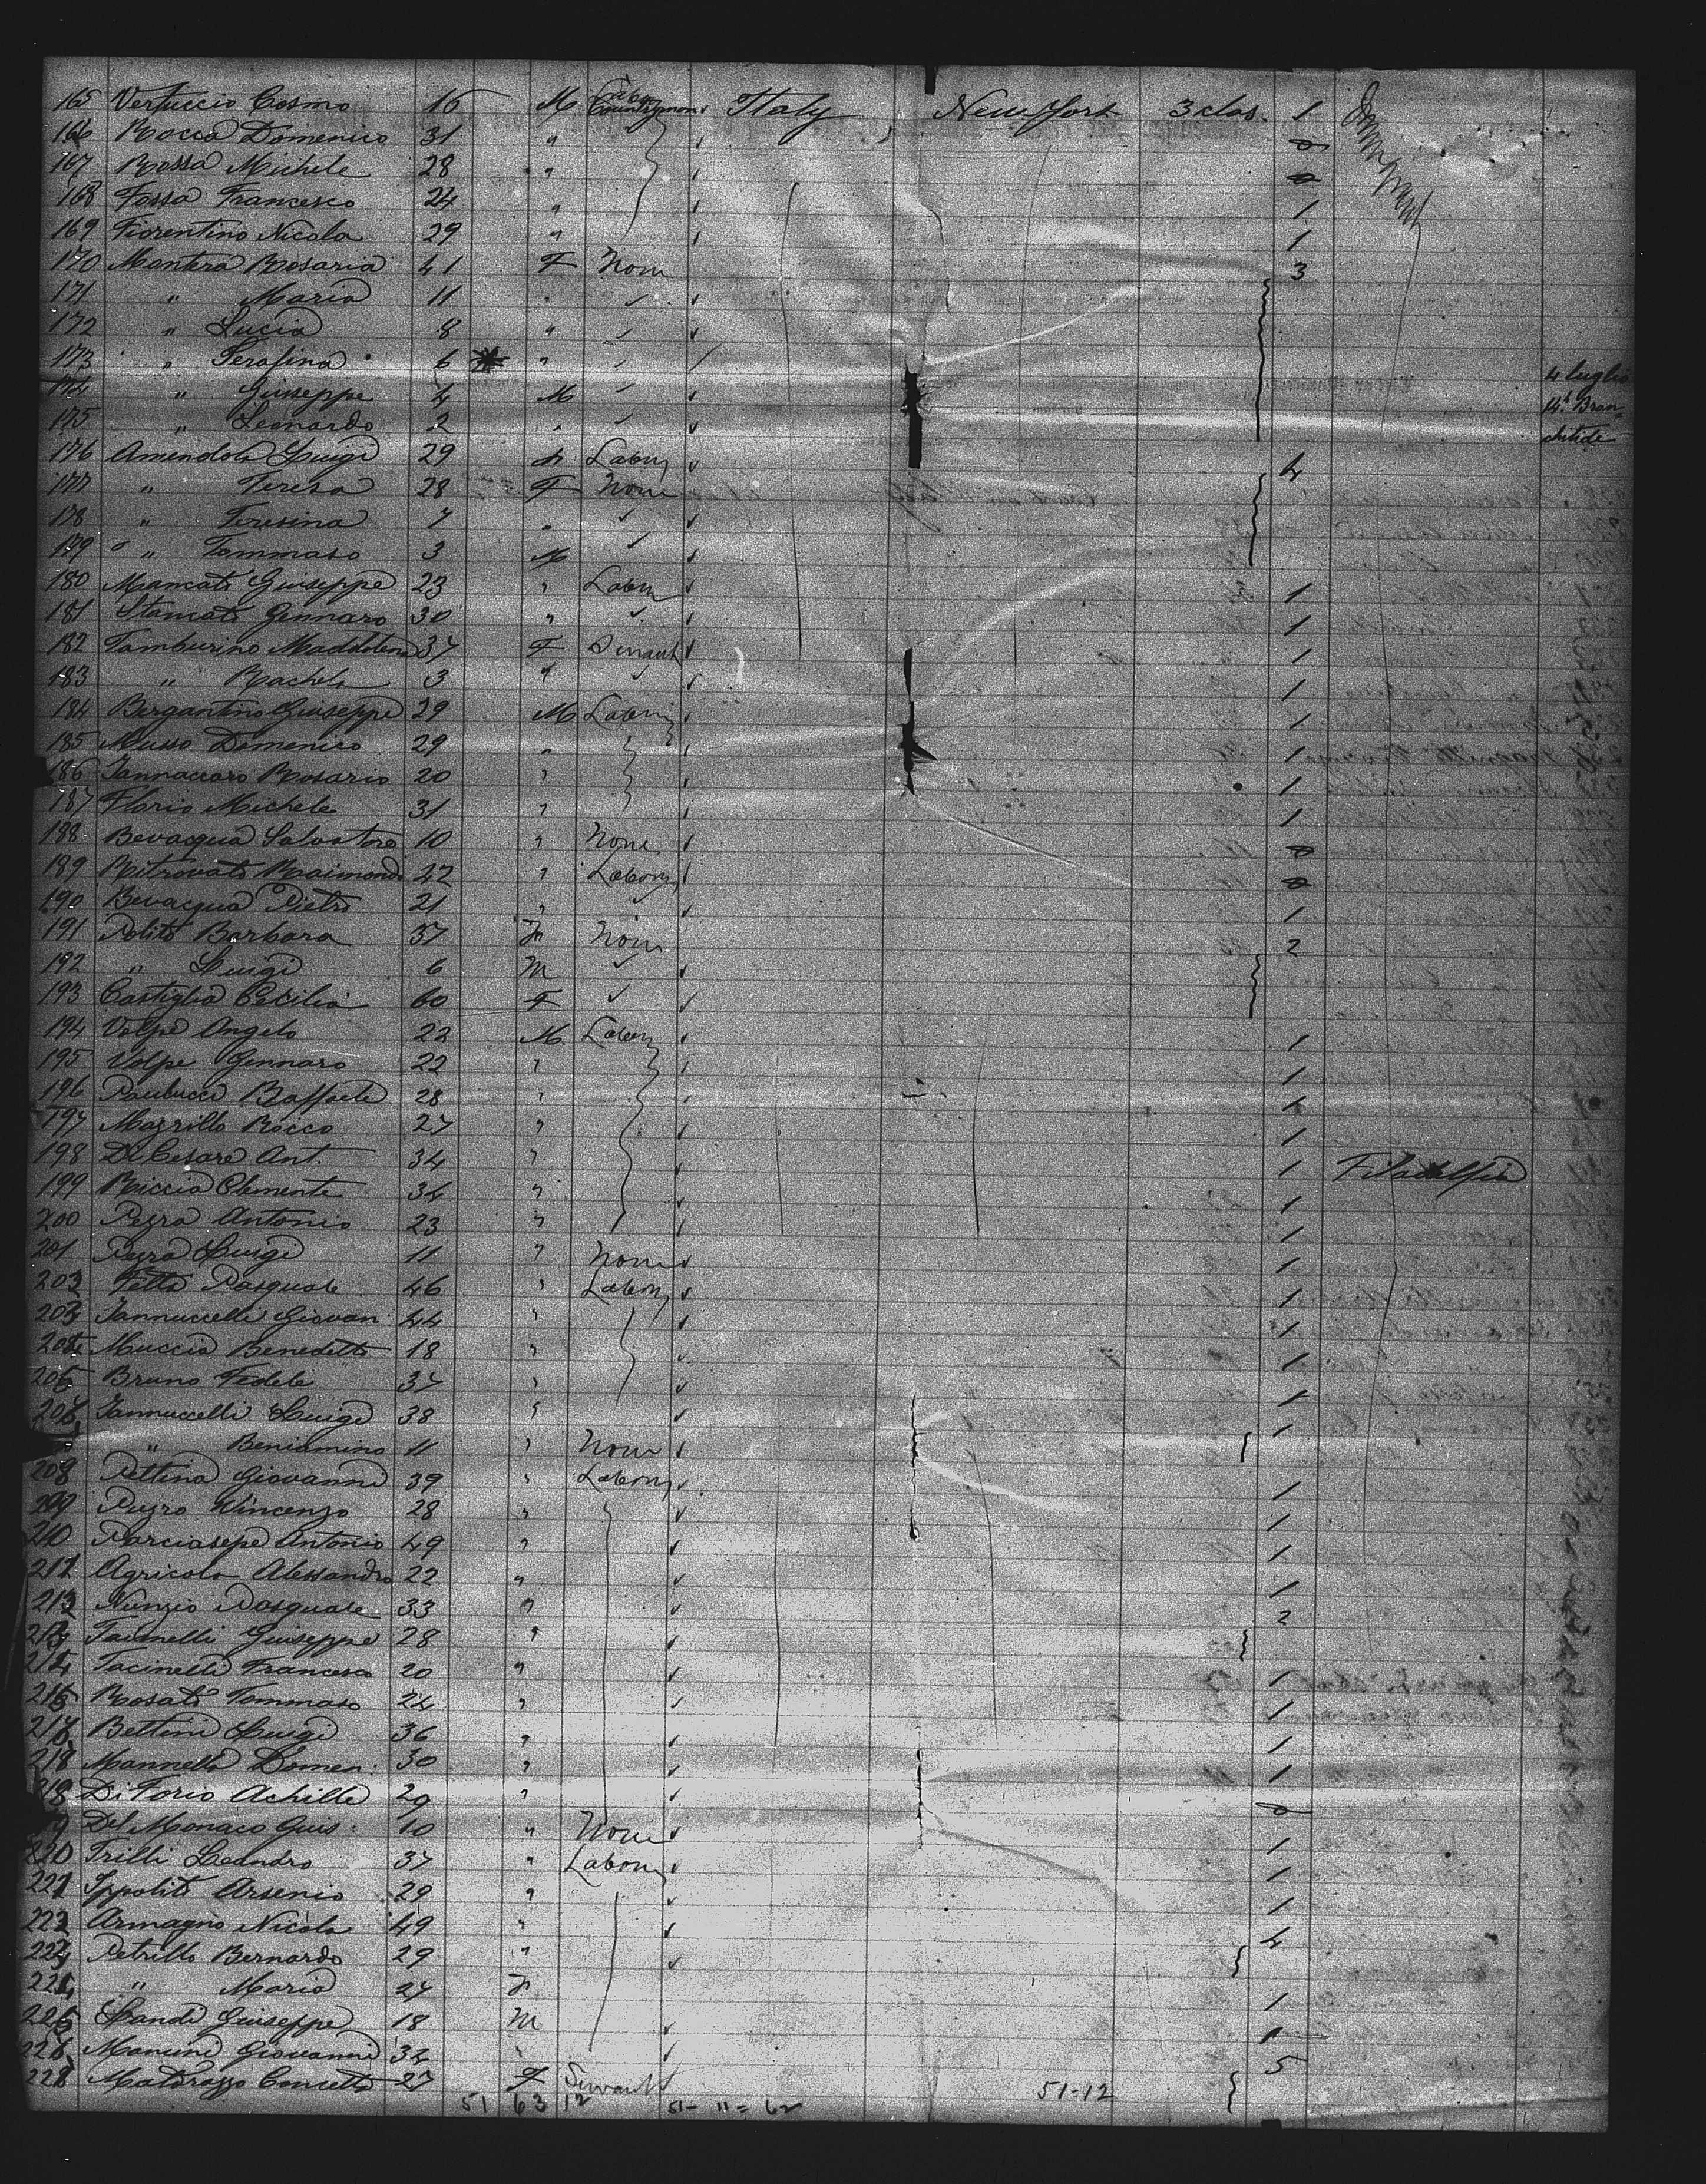 165 Vertuccio Cosmo 16 M Countrymen Italy New York 3 clas. 1
166 Rocca Domenico 31 " 0
167 Rossa Michele 28 " 0
168 Fossa Francesco 24 " 1
169 Fiorentino Nicola 29 " 1
170 Mantera Rosaria 41 F None 3
171 " Maria 11 "
172 " Lucia 8 "
173 " Serafina 6 "
174 " Giuseppe 4 M 4 luglio
175 " Leonardo 2 " Bron
chitide
176 Amendola Luigi 29 M Labor 4
177 " Teresa 28 F None
178 " Teresina 7 "
179 " Tommaso 3 M
180 Mancati Giuseppe 23 " Labor 1
181 Stancati Gennaro 30 " 1
182 Tamburino Maddalena 37 F Servant 1
183 " Rachela 3 " 1
184 Bergantino Giuseppe 29 M Labor 1
185 Musso Domenico 29 " 1
186 Iannaccaro Rosario 20 " 1
187 Florio Michele 31 " 1
188 Bevacqua Salvatore 10 " None 0
189 Ritrovato Raimondo 22 " Labor 0
190 Bevacqua Pietro 21 " 1
191 Polito Barbara 37 F None 2
192 " Luigi 6 M
193 Castiglia Cecilia 60 F
194 Volpe Angelo 22 M Labor 1
195 Volpe Gennaro 22 " 1
196 Paolucci Raffaele 28 " 1
197 Mazzillo Rocco 27 " 1
198 Di Cesare Ant. 34 " 1 Filadelfia
199 Riccia Clemente 34 " 1
200 Pezza Antonio 23 " 1
201 Pezza Luigi 11 " None 1
202 Fetta Pasquale 46 " Labor 1
203 Iannuccelli Giovan. 44 " 1
204 Muccia Benedetto 18 " 1
205 Bruno Fedele 37 " 1
206 Iannuccelli Luigi 38 " 1
" Beniamino 11 " None
208 Pettina Giovanni 39 " Labor 1
209 Puzzo Vincenzo 28 " 1
210 Parciasepe Antonio 49 " 1
211 Agricola Alessandro 22 " 1
212 Nunzio Pasquale 33 " 2
213 Tacinelli Giuseppe 28 "
214 Tacinelli Francesco 20 " 1
215 Rosati Tommaso 24 " 1
216 Bettini Luigi 36 " 1
217 Mannella Domen. 30 " 1
218 Di Forio Achille 29 " 0
Del Monaco Gius. 10 " None 1
220 Trilli Leandro 37 " Labor 1
221 Ippoliti Arsenio 29 " 1
222 Armagno Nicola 49 " 4
223 Petrillo Bernardo 29 "
224 " Maria 27 F 1
225 Landi Giuseppe 18 M 1
226 Mancini Giovanni 32 " 5
228 Matorazzo Concetta 27 F Servant
51 63 12 51-11=62 51-12